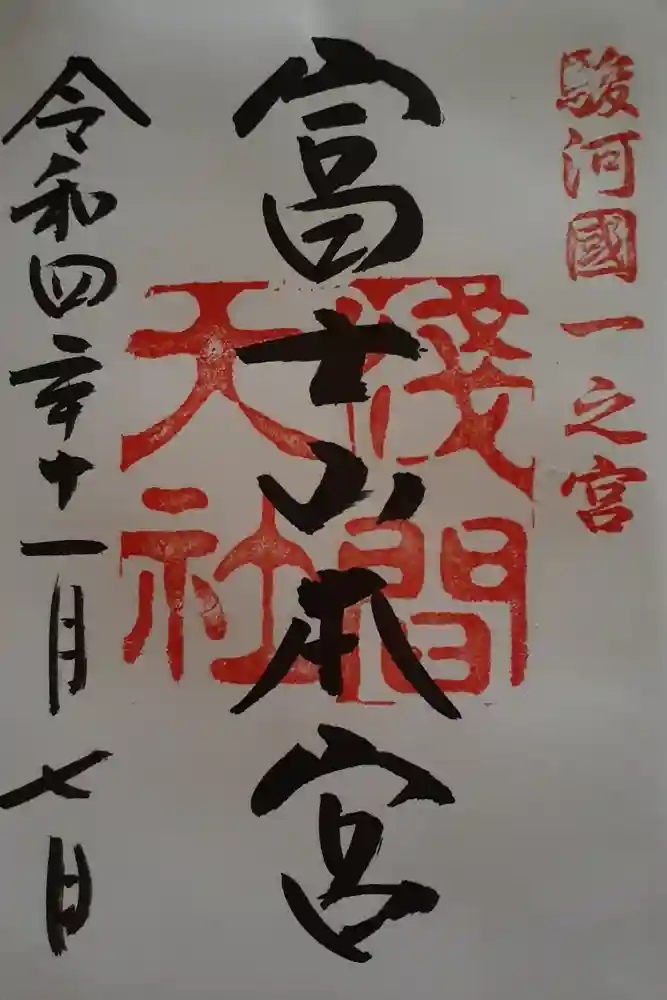 駿河國一之宮
富士山本宮
淺間
大社
令和四年十一月七日